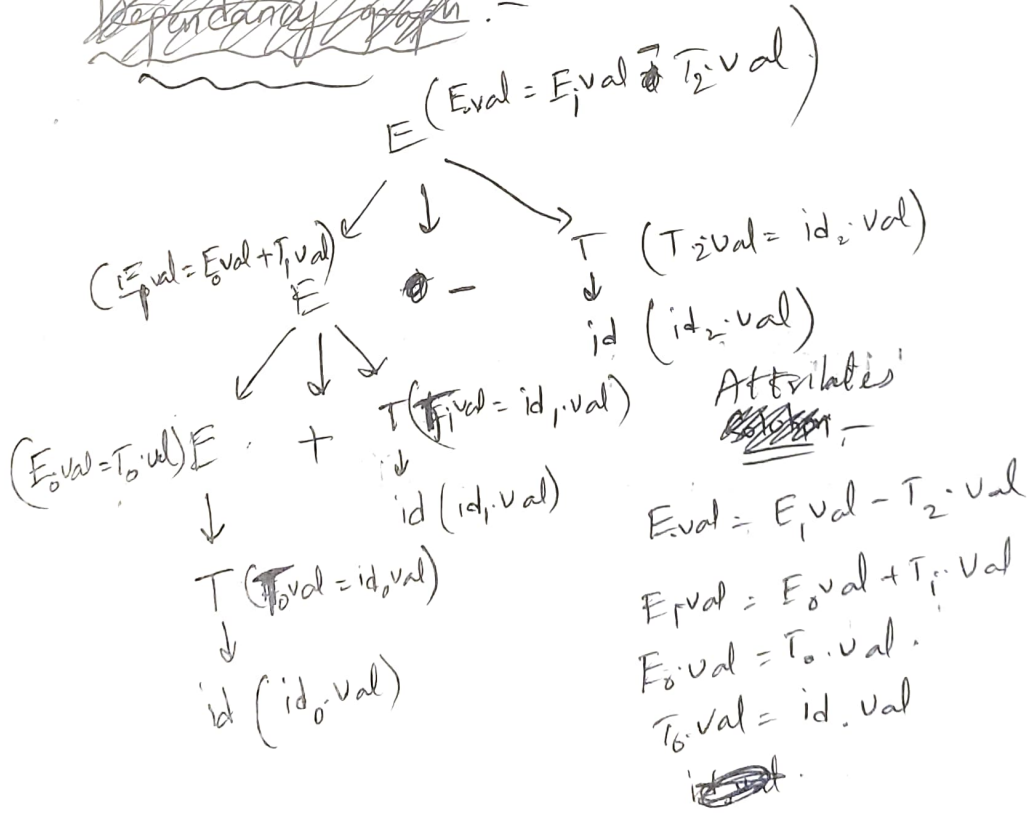 Dependancy graph :-
E (E.val = E₁val - T₂.val)
(E₁val = E₀val + T₁val) E - T (T₂val = id₂.val)
id (id₂.val)
(E₀.val = T₀.val) E + T (T₁val = id₁.val)
id (id₁.val)
T (T₀val = id₀val)
id (id₀.val)
Attributes :-
E.val = E₁val - T₂.val
E₁val = E₀val + T₁.val
E₀.val = T₀.val.
T₀.val = id.val